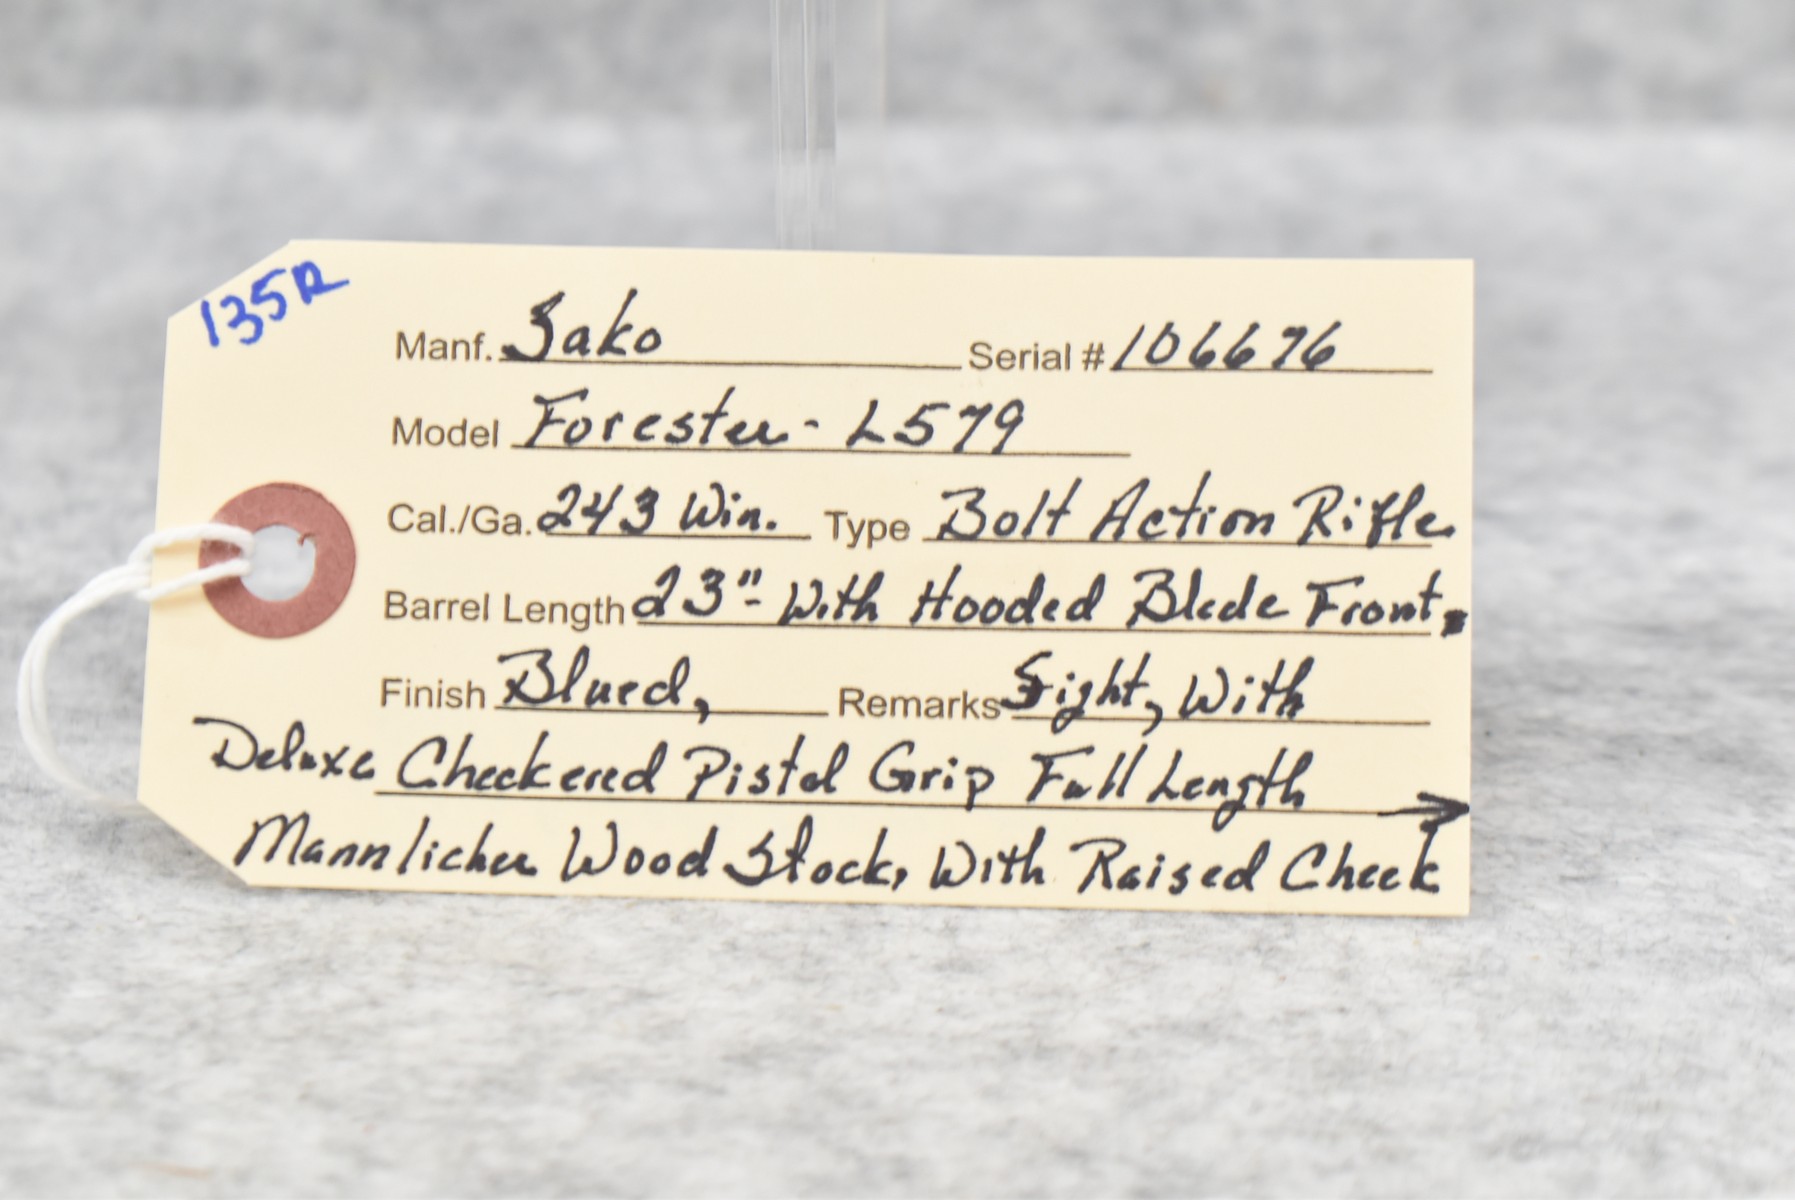 135R
Manf. Sako Serial # 106676
Model Forester - L579
Cal./Ga. 243 Win. Type Bolt Action Rifle
Barrel Length 23" - With Hooded Blade Front
Finish Blued, Remarks Sight, With
Deluxe Checkered Pistol Grip Full Length
Mannlicher Wood Stock, With Raised Cheek